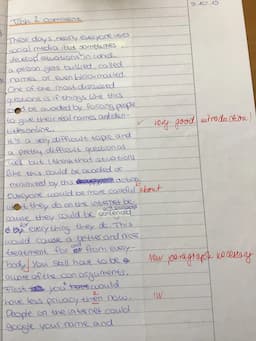 9.10.15
Topic 2 comment
These days, nearly everyone uses
social media but sometimes
develop situations in which
a person gets bullied, called
names or even blackmailed.
One of the most discussed
questions is if things like this
could be avoided by forcing people
to give their real names and iden-
tities online.
very good introduction!
It's a very difficult topic and
a pretty difficult question as
well but I think that situations
like this could be avoided or
minimized by this action.
Everyone would be more careful about
what they do on the internet be-
cause they could be
everything they do. This
would cause a better and nice
treatment for and from every-
body. You still have to be
aware of the con arguments.
new paragraph necessary
First you would
have less privacy then now.
W
People on the internet could
google your name and